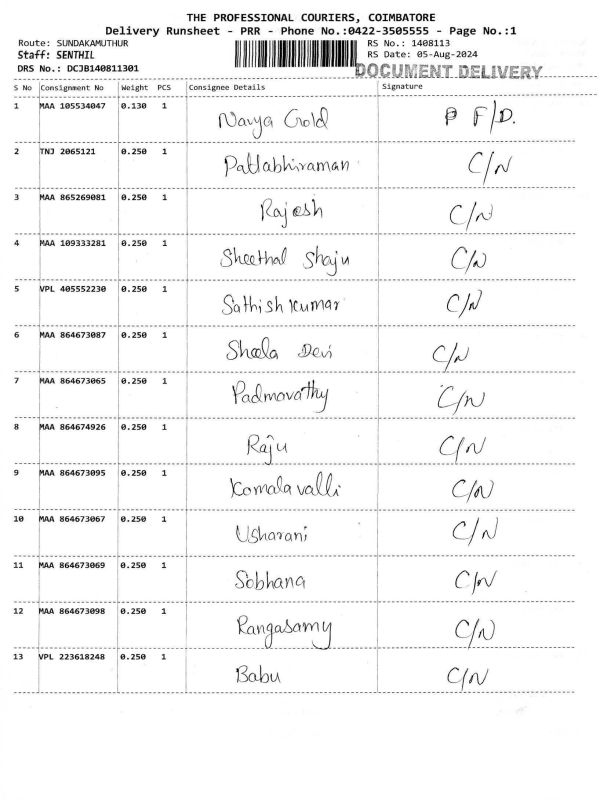 THE PROFESSIONAL COURIERS, COIMBATORE
Delivery Runsheet - PRR - Phone No.:0422-3505555 - Page No.:1
Route: SUNDAKAMUTHUR RS No.: 1408113
Staff: SENTHIL RS Date: 05-Aug-2024
DRS No.: DCJB140811301 DOCUMENT DELIVERY
S No Consignment No Weight PCS Consignee Details Signature
1 MAA 105534047 0.130 1 Navya Gold P F/D.
2 TNJ 2065121 0.250 1 Pattabhiraman C/N
3 MAA 865269081 0.250 1 Rajesh C/N
4 MAA 109333281 0.250 1 Sheethal Shaju C/N
5 VPL 405552230 0.250 1 Sathish Kumar C/N
6 MAA 864673087 0.250 1 Sheela Devi C/N
7 MAA 864673065 0.250 1 Padmavathy C/N
8 MAA 864674926 0.250 1 Raju C/N
9 MAA 864673095 0.250 1 Komala valli C/N
10 MAA 864673067 0.250 1 Usharani C/N
11 MAA 864673069 0.250 1 Sobhana C/N
12 MAA 864673098 0.250 1 Rangasamy C/N
13 VPL 223618248 0.250 1 Babu C/N